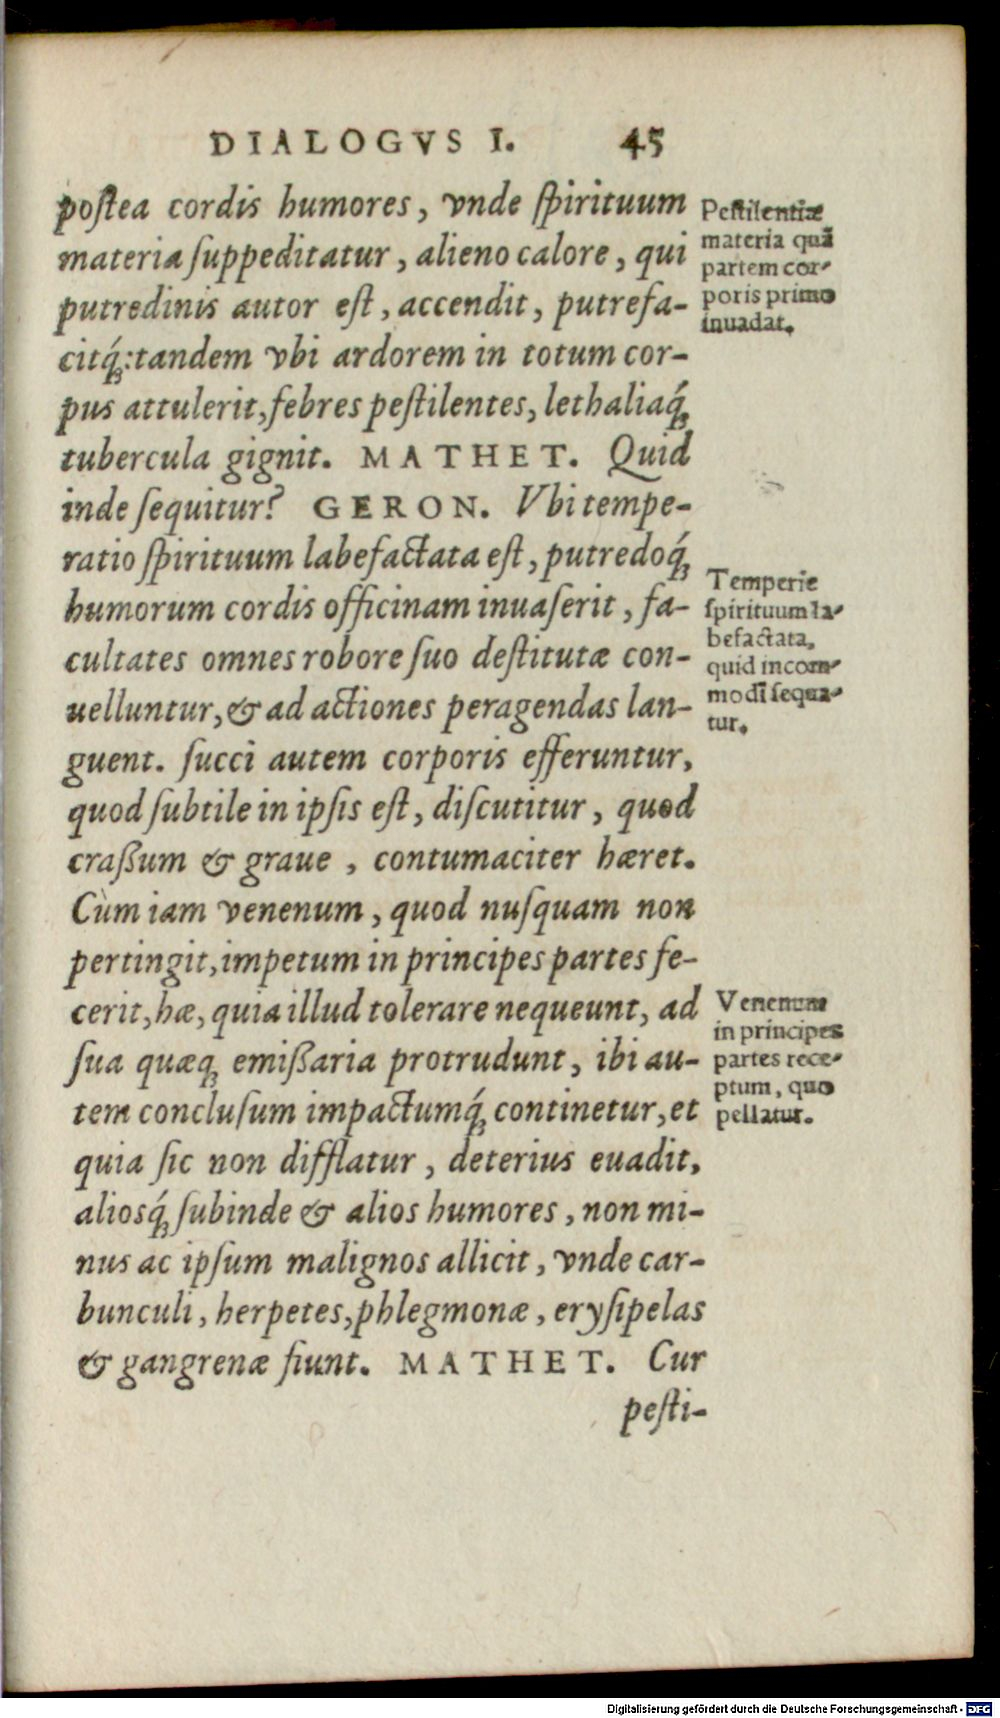 DIALOGVS I. 45
poſtea cordis humores, vnde ſpirituum
materia ſuppeditatur, alieno calore, qui
putredinis autor eſt, accendit, putrefa-
citq́;:tandem vbi ardorem in totum cor-
pus attulerit, febres peſtilentes, lethaliaq́;
tubercula gignit. MATHET. Quid
inde ſequitur? GERON. Vbi tempe-
ratio ſpirituum labefactata eſt, putredoq́;
humorum cordis officinam inuaſerit, fa-
cultates omnes robore ſuo deſtitutæ con-
uelluntur, & ad actiones peragendas lan-
guent. ſucci autem corporis efferuntur,
quod ſubtile in ipſis eſt, diſcutitur, quod
craßum & graue, contumaciter hæret.
Cùm iam venenum, quod nuſquam non
pertingit, impetum in principes partes fe-
cerit, hæ, quia illud tolerare nequeunt, ad
ſua quæq; emißaria protrudunt, ibi au-
tem concluſum impactumq́; continetur, et
quia ſic non difflatur, deterius euadit,
aliosq́; ſubinde & alios humores, non mi-
nus ac ipſum malignos allicit, vnde car-
bunculi, herpetes, phlegmonæ, eryſipelas
& gangrenæ fiunt. MATHET. Cur
peſti-
Peſtilentiæ
materia quā
partem cor-
poris primo
inuadat.
Temperie
ſpirituum la-
befactata,
quid incom-
modī ſequa-
tur.
Venenum
in principes
partes rece-
ptum, quo
pellatur.
Digitalisierung gefördert durch die Deutsche Forschungsgemeinschaft - DFG